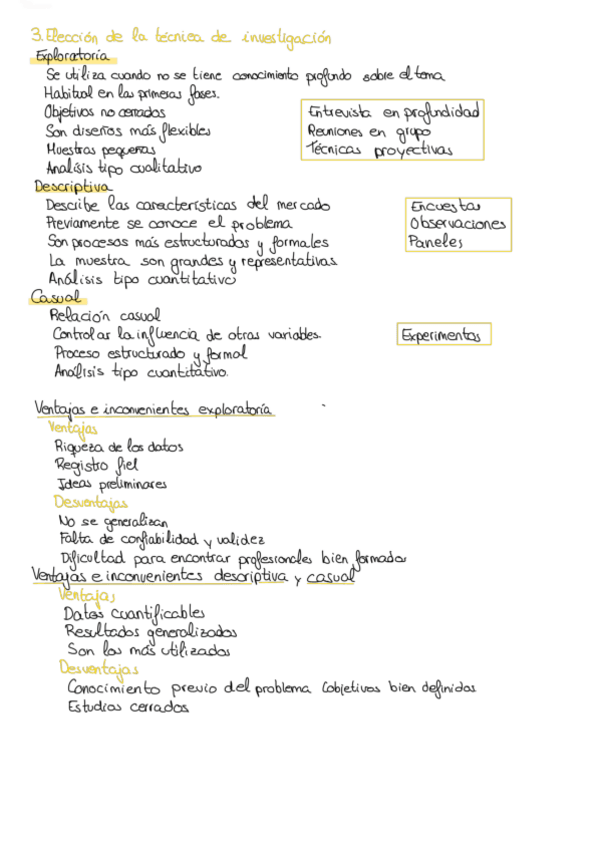 3. Elección de la técnica de investigación
Exploratoria
Se utiliza cuando no se tiene conocimiento profundo sobre el tema
Habitual en las primeras fases.
Objetivos no cerrados
Son diseños más flexibles
Muestras pequeñas
Analisis tipo cualitativo
Entrevista en profundidad
Reuniones en grupo
Técnicas proyectivas
Descriptiva
Describe las características del mercado
Previamente se conoce el problema
Son procesos más estructurados y formales
La muestra son grandes y representativas
Análisis tipo cuantitativo
Encuestas
Observaciones
Paneles
Casual
Relación casual
Controlar la influencia de otras variables.
Proceso estructurado y formal
Análisis tipo cuantitativo.
Experimentos
Ventajas e inconvenientes exploratoría
Ventajas
Riqueza de los datos
Registro fiel
Ideas preliminares
Desventajas
No se generalizan
Falta de confiabilidad y validez
Dificultad para encontrar profesionales bien formados
Ventajas e inconvenientes descriptiva y casual
Ventajas
Datos cuantificables
Resultados generalizados
Son los más utilizados
Desventajas
Conocimiento previo del problema (objetivos bien definidos
Estudios cerrados